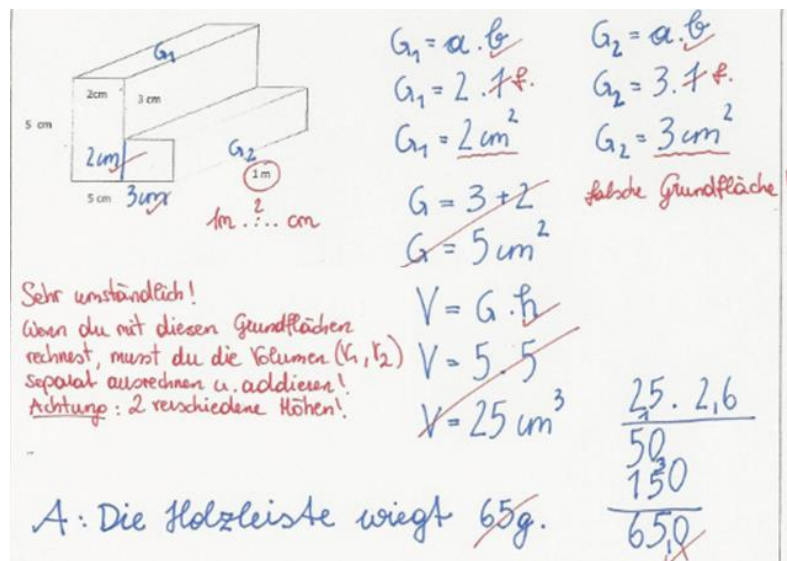 G₁
2cm
3 cm
5 cm
2cm
G₂
1 m
5 cm
3cm
1m .?. cm
G₁ = a . b
G₁ = 2 . 1 f.
G₁ = 2 cm²
G = 3 + 2
G = 5 cm²
V = G . h
V = 5 . 5
V = 25 cm³
G₂ = a . b
G₂ = 3 . 1 f.
G₂ = 3 cm²
falsche Grundfläche !
Sehr umständlich!
Wenn du mit diesen Grundflächen
rechnest, musst du die Volumen (V₁, V₂)
separat ausrechnen u. addieren!
Achtung : 2 verschiedene Höhen!
25 . 2,6
50
150
65,0
A : Die Holzleiste wiegt 65g.